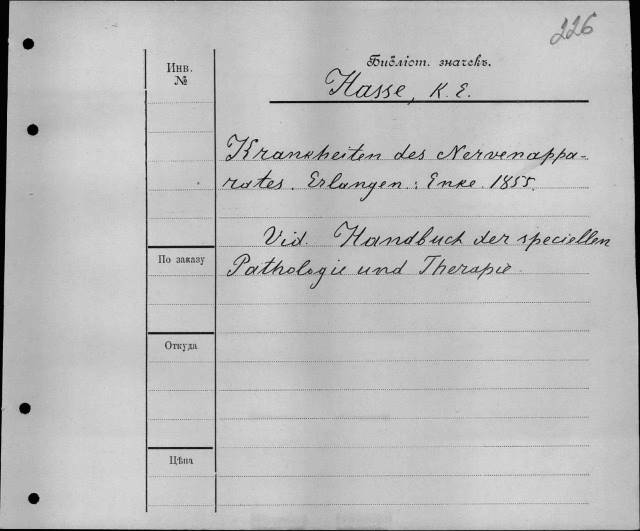 226
Инв.
№
Библіот. значекъ.
Hasse, K. E.
Krankheiten des Nervenappa-
rates. Erlangen: Enke. 1855.
Vid. Handbuch der speciellen
Pathologie und Therapie.
По заказу
Откуда
Цѣна